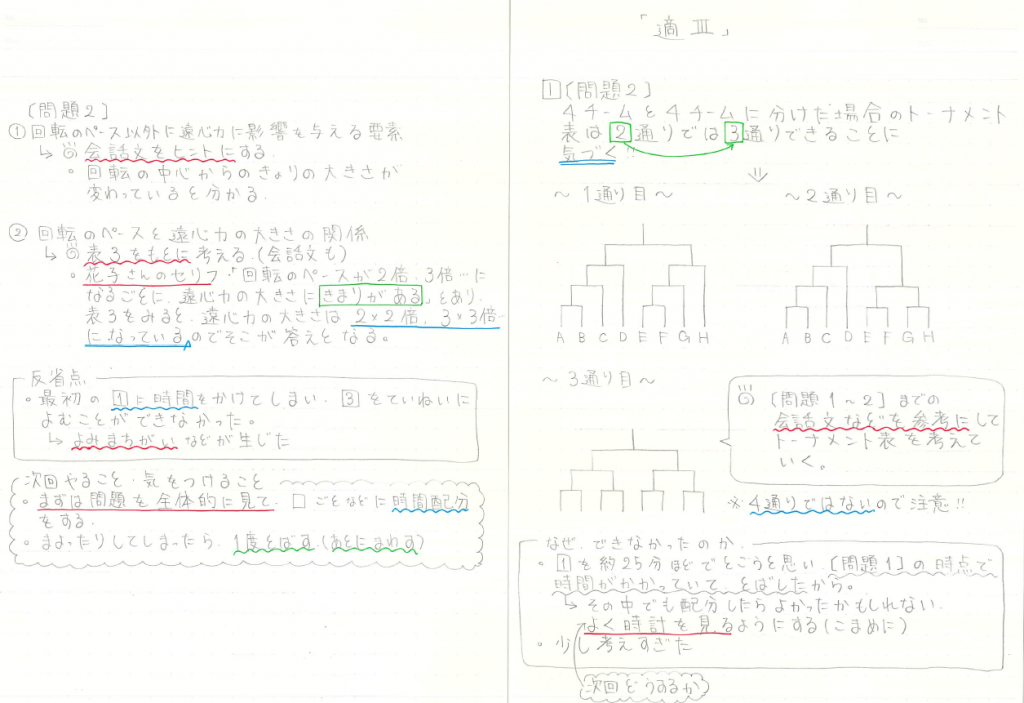 〔問題2〕
① 回転のペース以外に遠心力に影響を与える要素
↳ ◎ 会話文をヒントにする。
・回転の中心からのきょりの大きさが
変わっていると分かる。
② 回転のペースと遠心力の大きさの関係
↳ ◎ 表3をもとに考える。(会話文も)
・花子さんのセリフ・「回転のペースが2倍、3倍…に
なるごとに、遠心力の大きさにきまりがある」とあり、
表3をみると、遠心力の大きさは 2×2倍、3×3倍…
になっているのでそこが答えとなる。
反省点
・最初の1に時間をかけてしまい、3をていねいに
よむことができなかった。
↳ よみまちがいなどが生じた
次回やること・気をつけること
・まずは問題を全体的に見て、□ごとなどに時間配分
をする。
・まよったりしてしまったら、1度とばす。(あとにまわす)
「適Ⅲ」
1〔問題2〕
4チームと4チームに分けた場合のトーナメント
表は2通りでは3通りできることに
気づく!!
～1通り目～
～2通り目～
A B C D E F G H
A B C D E F G H
～3通り目～
◎〔問題1～2〕までの
会話文などを参考にして
トーナメント表を考えて
いく。
※4通りではないので注意!!
なぜ、できなかったのか、
・1を約25分ほどでとこうと思い、〔問題1〕の時点で
時間がかかっていて、とばしたから。
↳ その中でも配分したらよかったかもしれない。
よく時計を見るようにする(こまめに)
・少し考えすぎた
次回どうするか